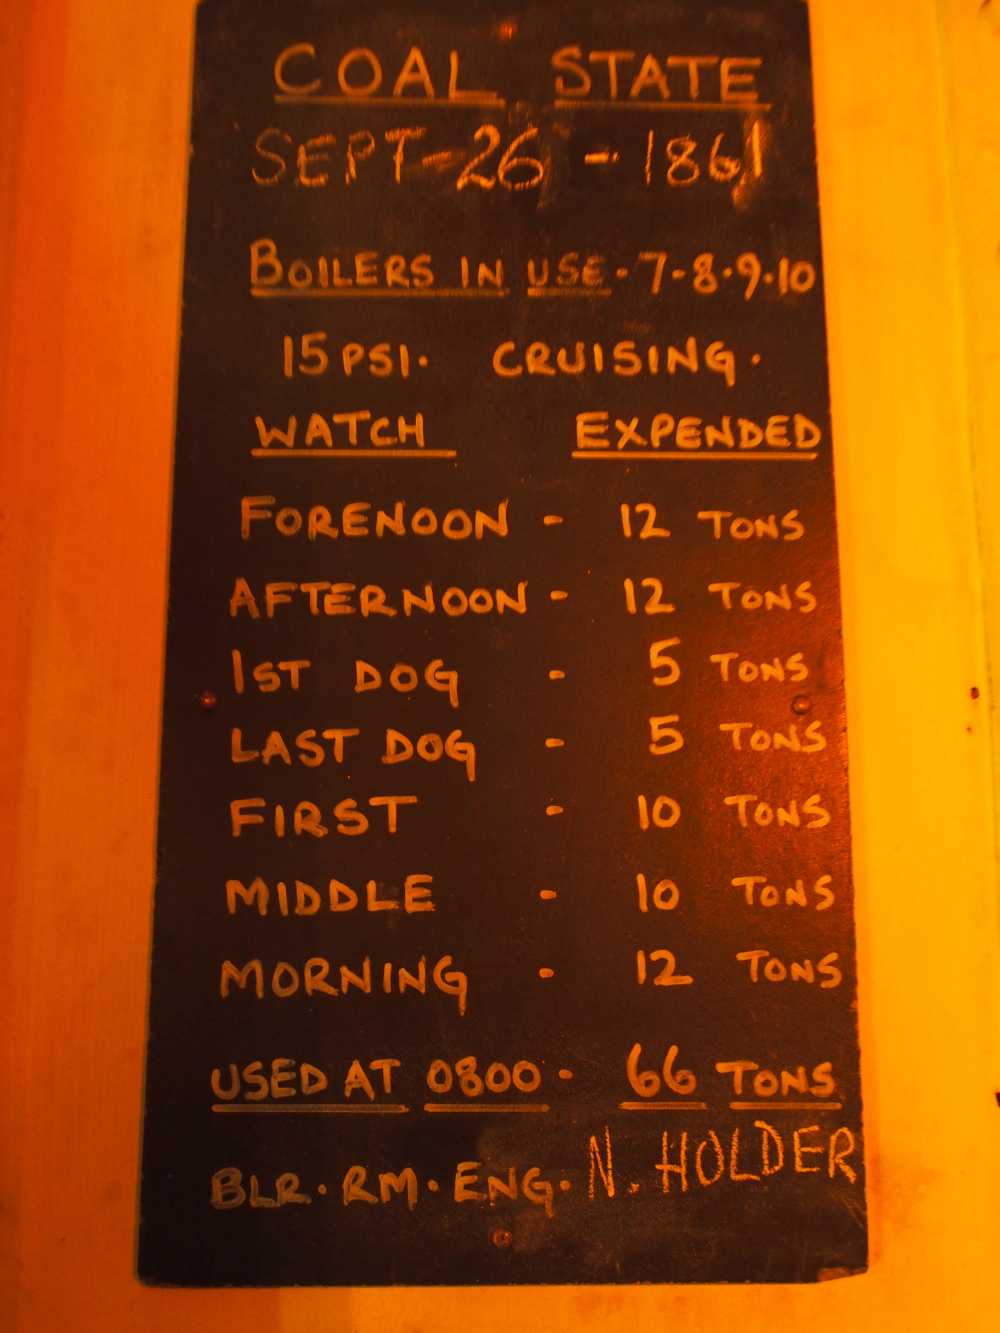 COAL STATE
SEPT-26 - 1861
BOILERS IN USE - 7-8-9-10
15 PSI. CRUISING.
WATCH EXPENDED
FORENOON - 12 TONS
AFTERNOON - 12 TONS
1ST DOG - 5 TONS
LAST DOG - 5 TONS
FIRST - 10 TONS
MIDDLE - 10 TONS
MORNING - 12 TONS
USED AT 0800 - 66 TONS
BLR. RM. ENG. N. HOLDER